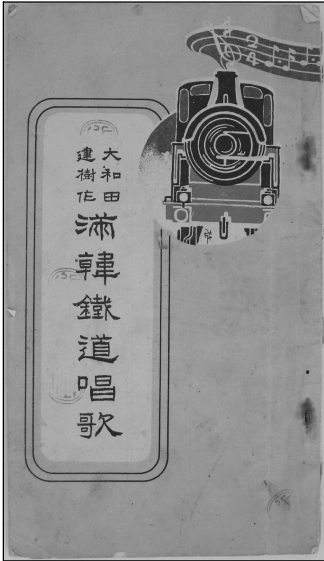 大和田
建樹作
滿韓鐵道唱歌
2
4